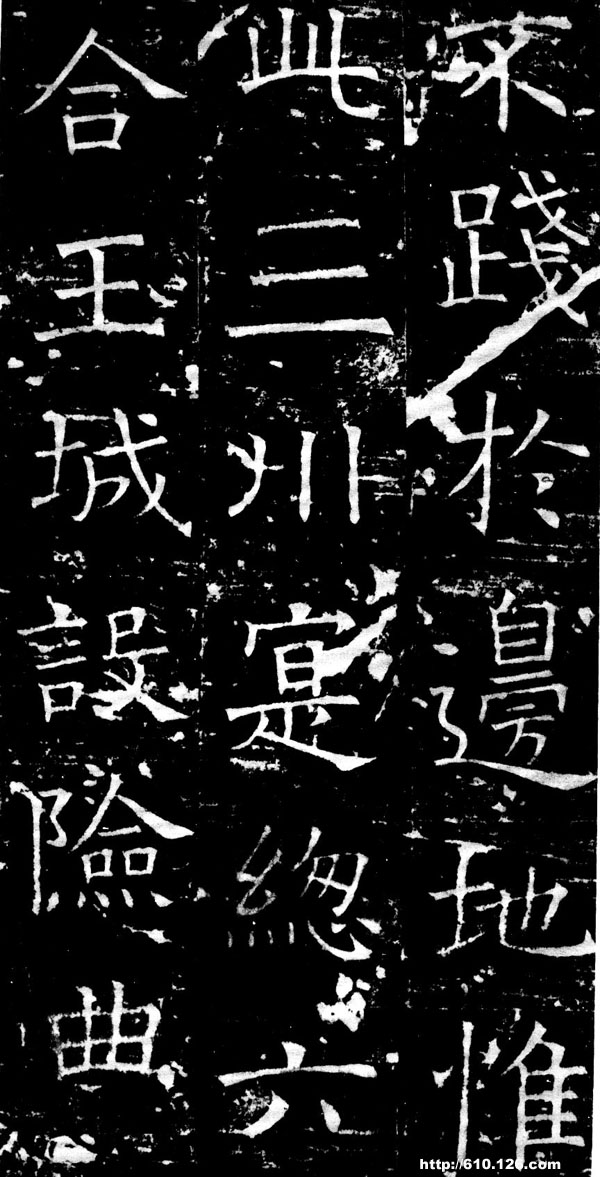 不踐於邊地惟
此三州寔緫六
合王城設險曲
http://610.126.com